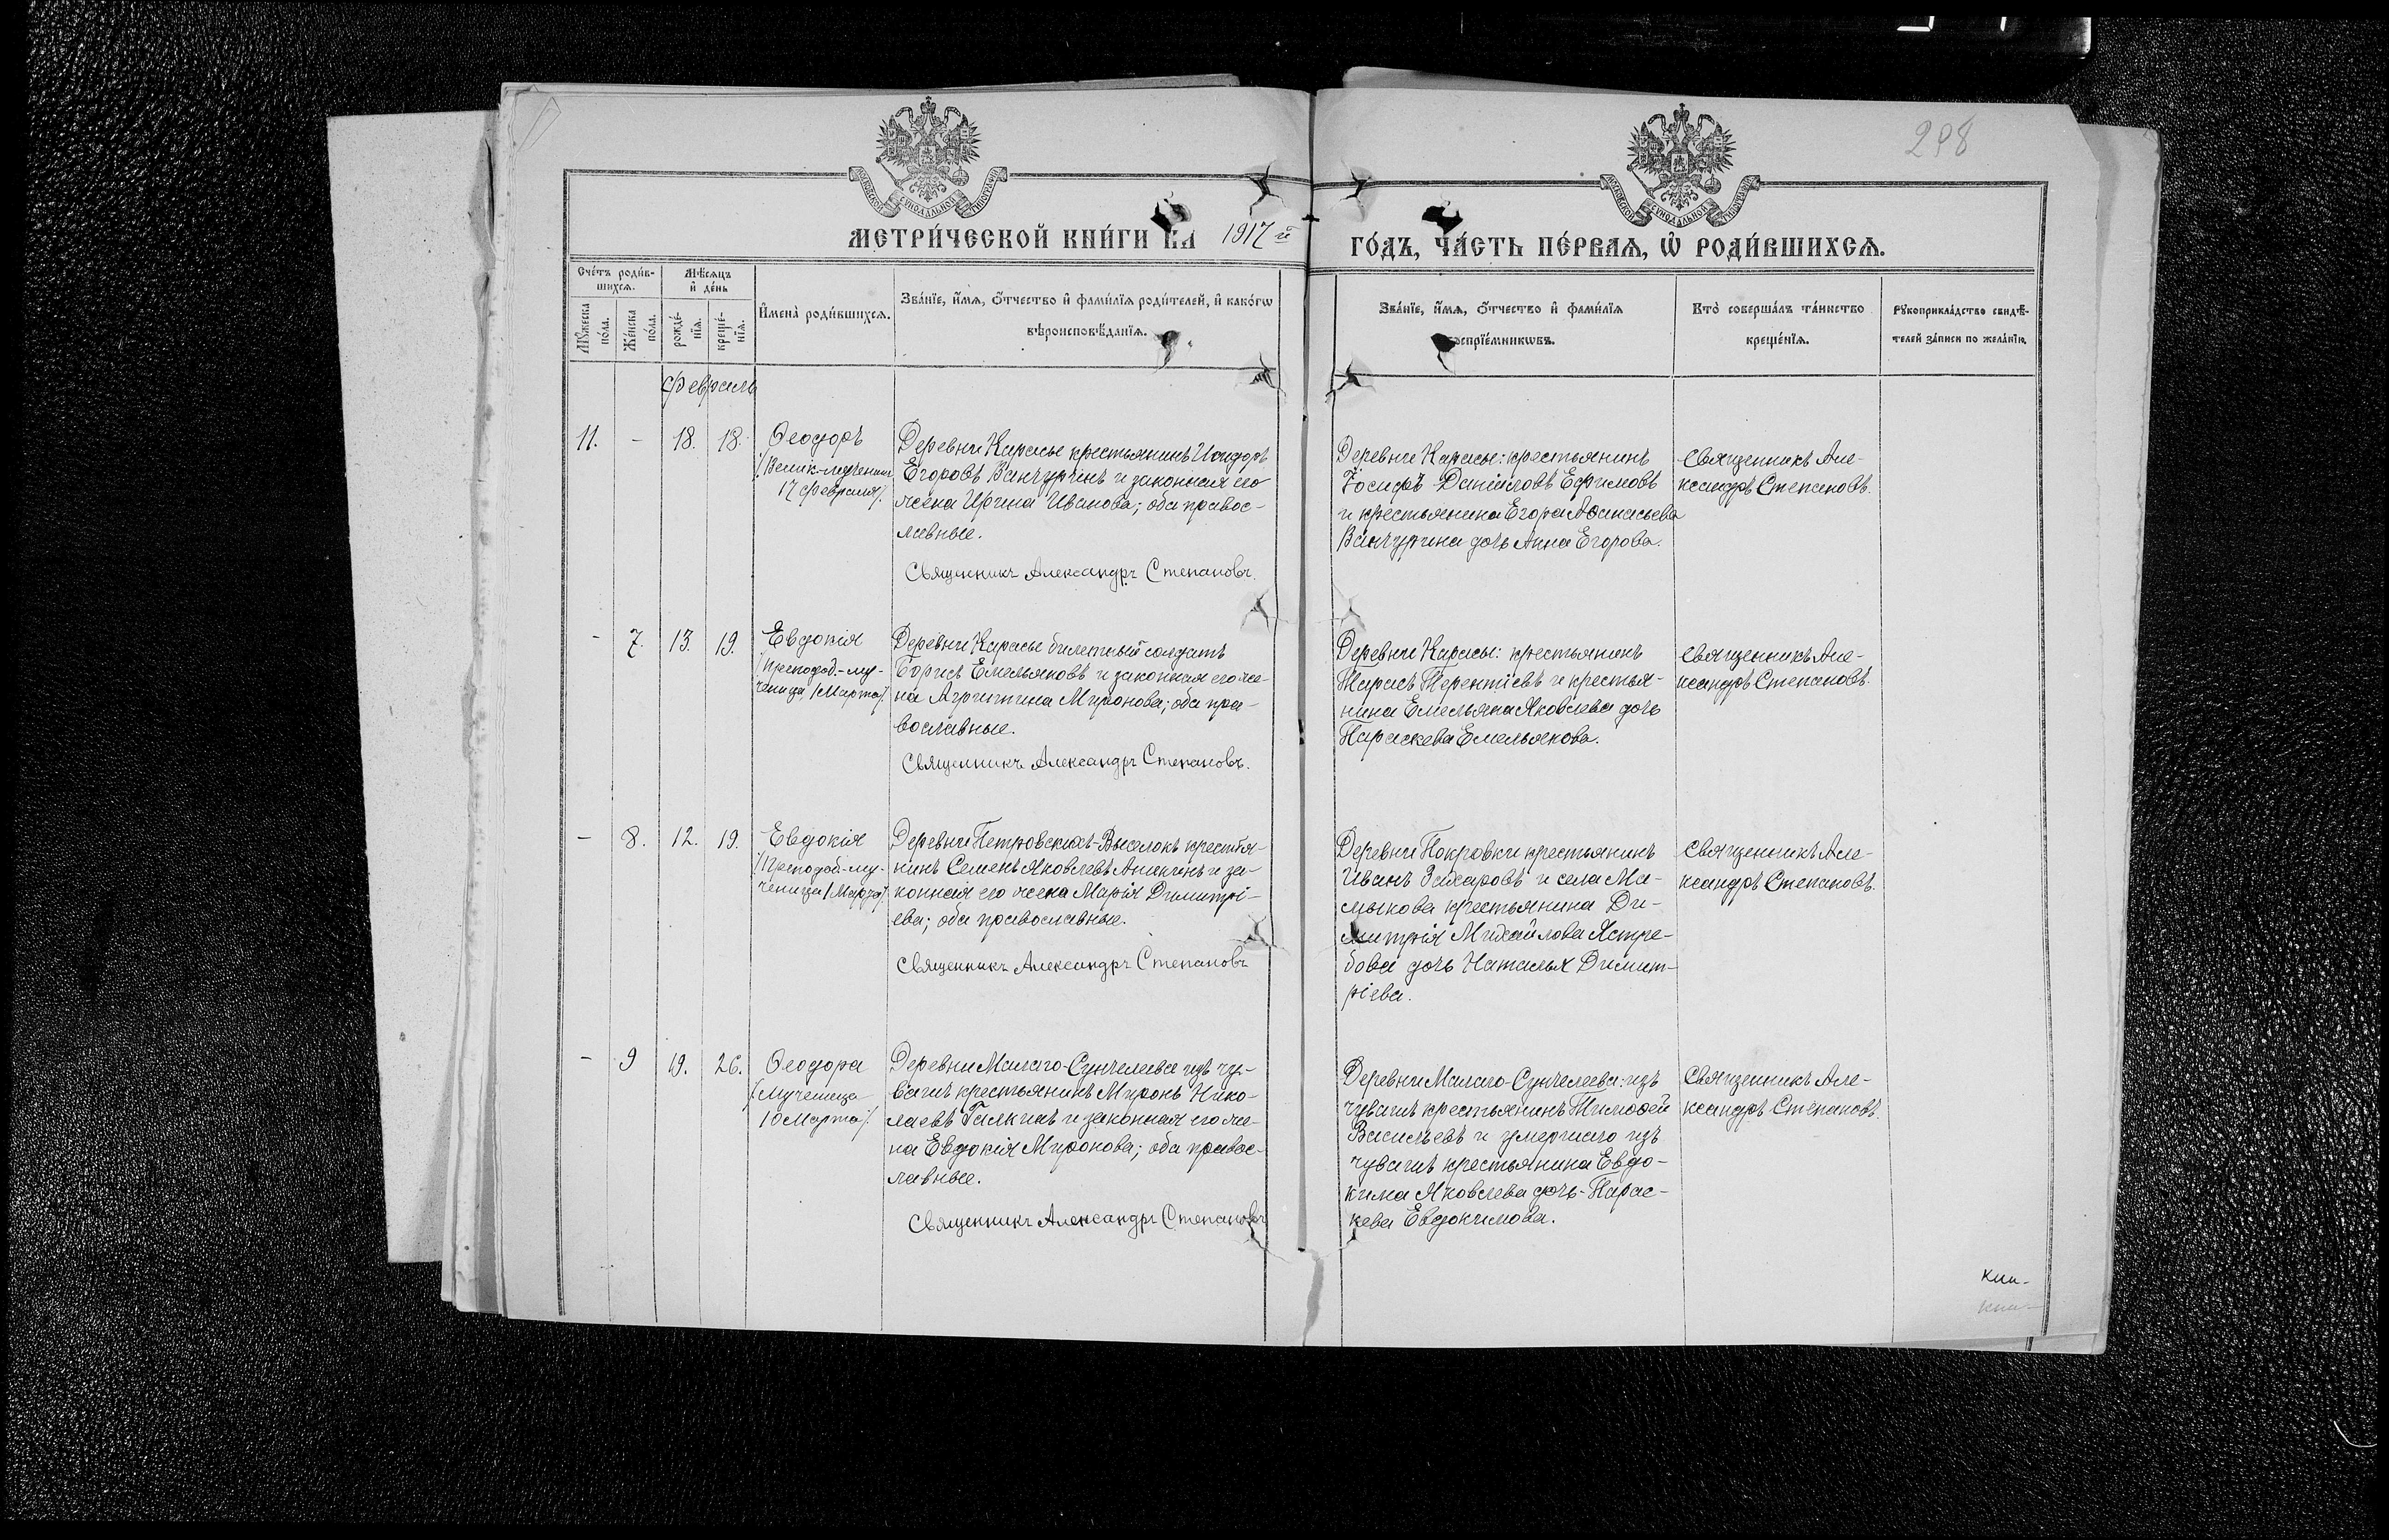 298
МОСКОВСКОЙ СѴНОДАЛЬНОЙ ТИПОГРАФІИ
МОСКОВСКОЙ СѴНОДАЛЬНОЙ ТИПОГРАФІИ
МЕТРИ́ЧЕСКОЙ КНИ́ГИ НА 1917 й ГО́ДЪ, ЧА́СТЬ ПЕ́РВАЯ, Ѡ҆ РОДИ́ВШИХСѦ.
Сче́тъ роди́в-
шихсѧ.
Мѣ́сѧцъ
и҆ де́нь
Мꙋ́жеска
по́ла.
Же́нска
по́ла.
рожде́-
нїѧ.
креще́-
нїѧ.
И҆мена̀ роди́вшихсѧ.
Зва́нїе, и҆́мѧ, ѻ҆́тчество и҆ фами́лїѧ роди́телей, и҆ како́гѡ
вѣроисповѣ́данїѧ.
Зва́нїе, и҆́мѧ, ѻ҆́тчество и҆ фами́лїѧ
воспрїе́мникѡвъ.
Кто̀ соверша́лъ та́инство
креще́нїѧ.
Рꙋкоприкла́дство свидѣ́-
телей за́писи по жела́нїю.
Февраль
11. - 18. 18. Ѳеодоръ
/Велик-мученик
17 февраля/.
Деревни Карасье крестьянинъ Исидоръ
Егоровъ Ванчуринъ и законная его
жена Ирина Иванова; оба правос-
лавные.
Священникъ Александръ Степановъ.
Деревни Карасье: крестьянинъ
Іосифъ Даніиловъ Ефимовъ
и крестьянина Егора Аѳанасьева
Ванчурина дочь Анна Егорова.
Священникъ Але-
ксандръ Степановъ.
- 7. 13. 19. Евдокія
/Преподоб-му-
ченица 1 Марта/.
Деревни Карасье билетный солдатъ
Борисъ Емельяновъ и законная его же-
на Агриппина Миронова; оба пра-
вославные.
Священникъ Александръ Степановъ.
Деревни Карасье: крестьянинъ
Тарасъ Терентіевъ и крестья-
нина Емельяна Яковлева дочь
Параскева Емельянова.
Священникъ Але-
ксандръ Степановъ.
- 8. 12. 19. Евдокія
/Преподоб-му-
ченица 1 Марта/.
Деревни Петровскихъ-Выселокъ крестья-
нинъ Семенъ Яковлевъ Аникинъ и за-
конная его жена Марія Димитрі-
ева; оба православные.
Священникъ Александръ Степановъ
Деревни Покровки крестьянинъ
Иванъ Захаровъ и села Ма-
мыкова крестьянина Ди-
митрія Михайлова Ястре-
бова дочь Наталья Димит-
ріева.
Священникъ Але-
ксандръ Степановъ.
- 9 19. 26. Ѳеодора
/Мученица
10 Марта/.
Деревни Малаго-Сунчелеева изъ чу-
вашъ крестьянинъ Миронъ Нико-
лаевъ Галкинъ и законная его же-
на Евдокія Миронова; оба правос-
лавные.
Священникъ Александръ Степановъ
Деревни Малаго-Сунчелеева: изъ
чувашъ крестьянинъ Тимоѳей
Васильевъ и умершаго изъ
чувашъ крестьянина Евдо-
кима Яковлева дочь-Парас-
кева Евдокимова.
Священникъ Але-
ксандръ Степановъ.
кни-
кни-